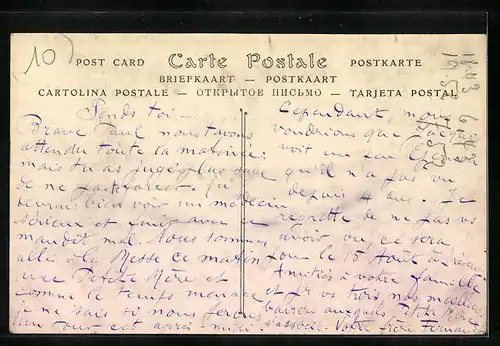 10
POST CARD Carte Postale POSTKARTE
BRIEFKAART — POSTKAART
CARTOLINA POSTALE — ОТКРЫТОЕ ПИСЬМО — TARJETA POSTAL
Brave Paul nous t'avons
attendu toute la matinée
mais tu as jugé plus sage
de ne pas
bien voir un médecin
sérieux et avec ce
maudit mal. Nous sommes
allés à la Messe ce matin
avec Petite Mère et
comme le temps menace
je ne sais si nous ferons
tous cet après-midi
Cependant, nous
voudrions que
voit un peu
qu'il n'a pas vu
depuis 4 ans. Je
regrette de ne pas
avoir vu, ce sera
pour le 15 Août à
Amitiés à votre famille
et pr vs trois, nos meilleurs
baisers auxquels Petite Mère
s'associe. Votre frère Fernand